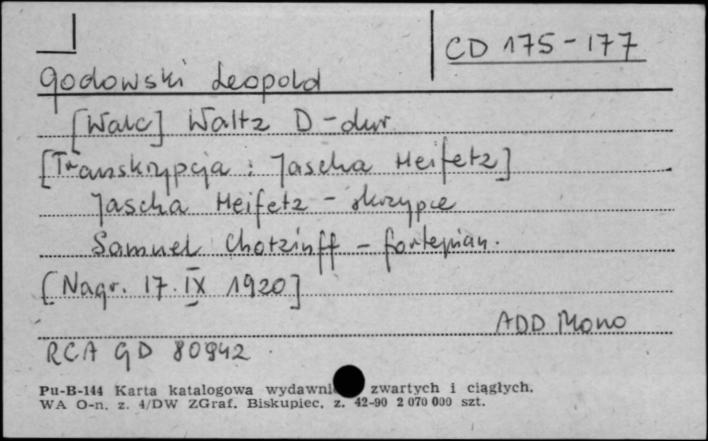 CD 175-177
Godowski Leopold
[Walc] Waltz D-dur
[Transkrypcja : Jascha Heifetz]
Jascha Heifetz - skrzypce
Samuel Chotzinff - fortepian.
[Nagr. 17. IX 1920]
ADD Mono
RCA GD 80942
Pu-B-144 Karta katalogowa wydawni zwartych i ciągłych.
WA O-n. z. 4/DW ZGraf. Biskupiec, z. 42-90 2 070 000 szt.